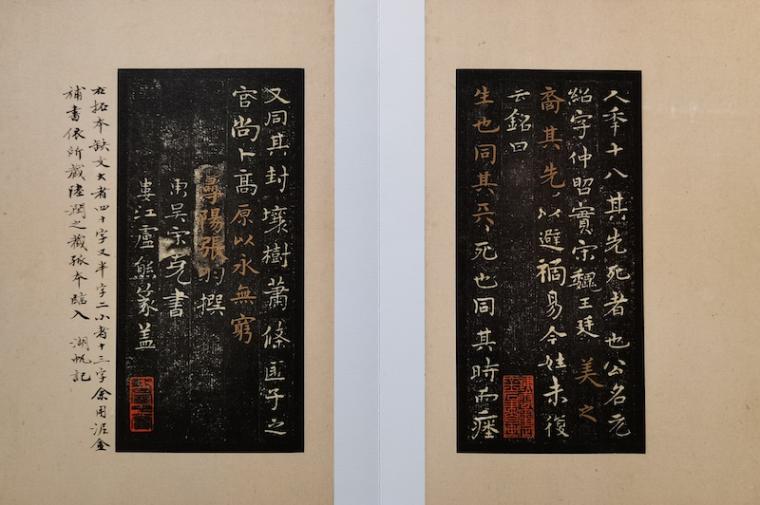 人秊十八其先死者也公名元
紹字仲昭實宋魏王廷美之
裔其先以避禍易今姓未復
云銘曰
生也同其天死也同其時而瘞
又同其封壤樹蕭條匪子之
宮尚卜高原以永無窮
尋陽張羽撰
東吳宋克書
婁江盧熊篆蓋
右拓本缺文大者四十字又半字二小者十三字余用泥金
補書依所藏陸潤之藏孤本臨入 湖帆記